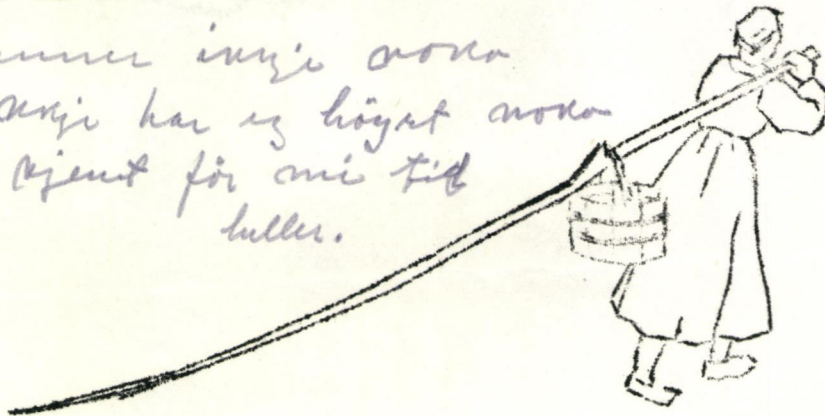 inkje noko
nkje har eg höyrt noko
kjent för mi tid
heller.